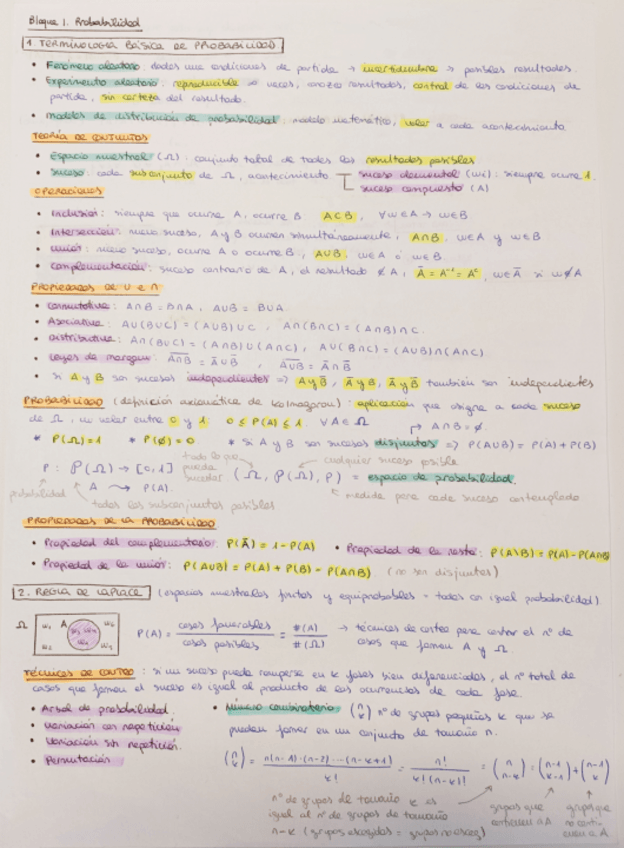 Bloque 1. Probabilidad
1. TERMINOLOGÍA BÁSICA DE PROBABILIDAD
• Fenómeno aleatorio: dadas unas condiciones de partida → incertidumbre → posibles resultados.
• Experimento aleatorio: reproducible ∞ veces, conozco resultados, control de las condiciones de
partida, sin certeza del resultado.
• modelos de distribución de probabilidad: modelo matemático, valor a cada acontecimiento
TEORÍA DE CONJUNTOS
• Espacio muestral (Ω): conjunto total de todos los resultados posibles
• suceso: cada subconjunto de Ω, acontecimiento
suceso elemental (wi): siempre ocurre 1.
suceso compuesto (A)
OPERACIONES
• Inclusión: siempre que ocurre A, ocurre B. A⊂B, ∀w∈A → w∈B
• Intersección: nuevo suceso, A y B ocurren simultáneamente, A∩B, w∈A y w∈B
• unión: nuevo suceso, ocurre A o ocurre B, A∪B, w∈A o w∈B
• complementación: suceso contrario de A, el resultado ∉ A, Ā = A⁻¹ = Aᶜ, w∈Ā si w∉A
PROPIEDADES DE U e ∩
• conmutativa: A∩B = B∩A, A∪B = B∪A
• Asociativa: A∪(B∪C) = (A∪B)∪C, A∩(B∩C) = (A∩B)∩C.
• Distributiva: A∩(B∪C) = (A∩B)∪(A∩C), A∪(B∩C) = (A∪B)∩(A∪C)
• Leyes de Morgan: A̅∩̅B̅ = Ā∪B̄, A̅∪̅B̅ = Ā∩B̄
• si A y B son sucesos independientes => A y B̄, Ā y B, Ā y B̄ también son independientes
PROBABILIDAD (definición axiomática de Kolmogrov): aplicación que asigna a cada suceso
de Ω, un valor entre 0 y 1. 0 ≤ P(A) ≤ 1. ∀A∈Ω
A∩B = ∅
* P(Ω)=1 * P(∅)=0 * si A y B son sucesos disjuntos => P(A∪B) = P(A) + P(B)
todo lo que pueda suceder
cualquier suceso posible
P: 𝒫(Ω) → [0,1] (Ω, 𝒫(Ω), P) = espacio de probabilidad.
probabilidad A ⟶ P(A). medida para cada suceso contemplado
todos los subconjuntos posibles
PROPIEDADES DE LA PROBABILIDAD
• Propiedad del complementario: P(Ā) = 1 - P(A) • Propiedad de la resta: P(A\B) = P(A) - P(A∩B)
• Propiedad de la unión: P(A∪B) = P(A) + P(B) - P(A∩B) (no son disjuntos)
2. REGLA DE LAPLACE (espacios muestrales finitos y equiprobables = todos con igual probabilidad)
Ω w₁ A
P(A) = casos favorables / casos posibles = #(A) / #(Ω) → técnicas de conteo para contar el nº de
casos que forman A y Ω.
TÉCNICAS DE CONTEO: si un suceso puede romperse en k fases bien diferenciadas, el nº total de
casos que forman el suceso es igual al producto de las ocurrencias de cada fase.
• Árbol de probabilidad.
• Variación con repetición
• Variación sin repetición.
• Permutación
• Número combinatorio (n k) nº de grupos pequeños k que se
pueden formar en un conjunto de tamaño n.
(n k) = n(n-1)·(n-2)·...·(n-k+1) / k! = n! / k!(n-k)! = (n n-k) = (n-1 k-1) + (n-1 k)
nº de grupos de tamaño k es
igual al nº de grupos de tamaño
n-k (grupos escogidos = grupos no escog)
grupos que
contienen a A
grupos que
no conti-
enen a A